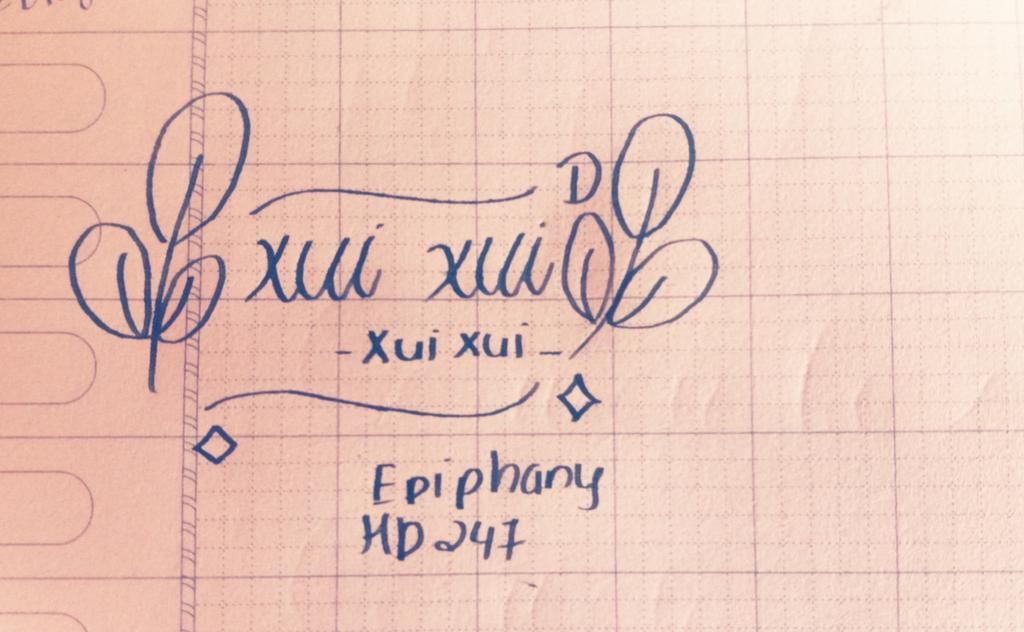 D
xui xui
- Xui xui -
Epiphany
HD 247